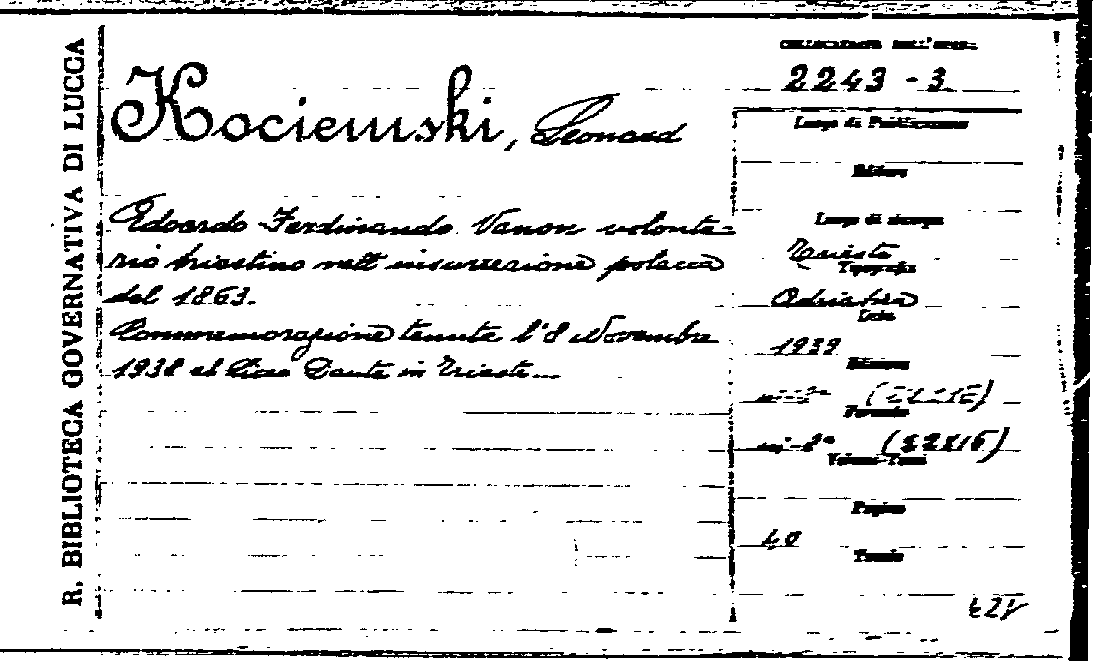 R. BIBLIOTECA GOVERNATIVA DI LUCCA
Kociemski, Leonard
Edoardo Ferdinando Vanon volonta=
rio triestino nell'insurrezione polacca
del 1863.
Commemorazione tenuta l'8 Novembre
1938 al Liceo Dante in Trieste
COLLOCAZIONE DELL'OPERA
2243-3
Luogo di Pubblicazione
Editore
Luogo di stampa
Trieste
Tipografia
Adriatica
Data
1939
Edizione
in-8° (22x16)
Formato
in-8° (22x16)
Volumi-Tomi
Pagine
40
Tavole